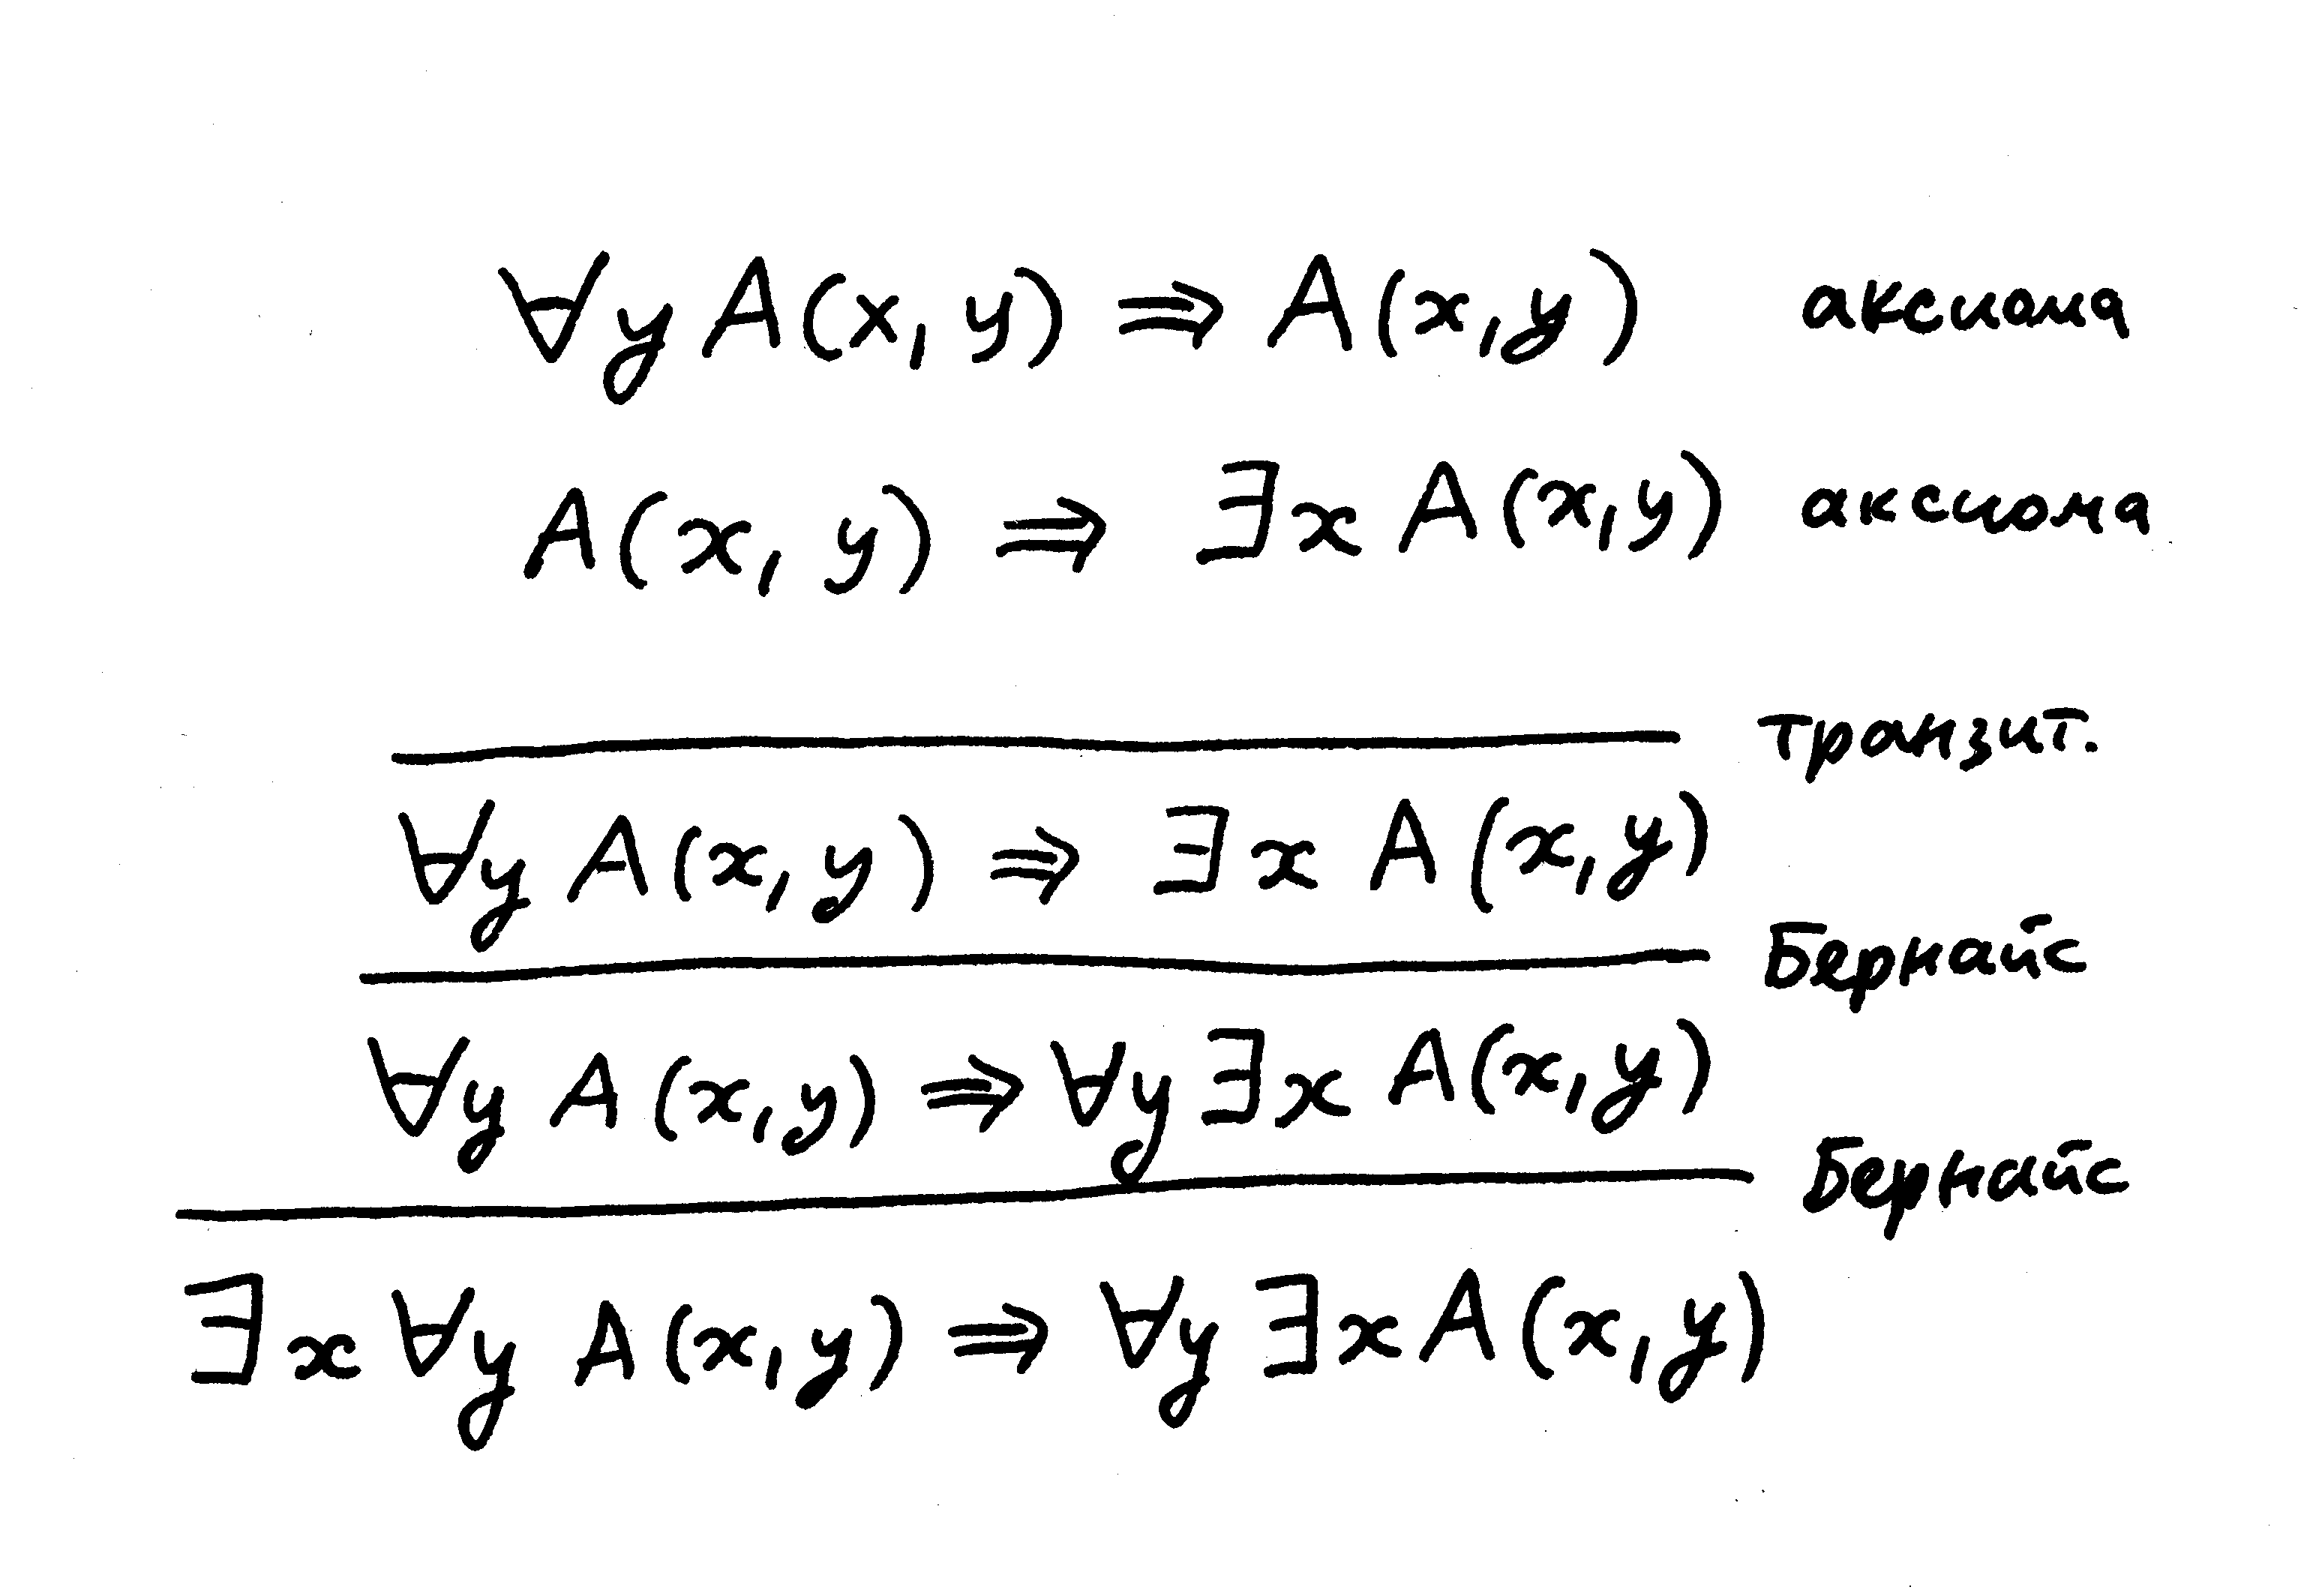 ∀y A(x,y) ⇒ A(x,y) аксиома
A(x,y) ⇒ ∃x A(x,y) аксиома
транзит.
∀y A(x,y) ⇒ ∃x A(x,y)
Бернайс
∀y A(x,y) ⇒ ∀y ∃x A(x,y)
Бернайс
∃x ∀y A(x,y) ⇒ ∀y ∃x A(x,y)